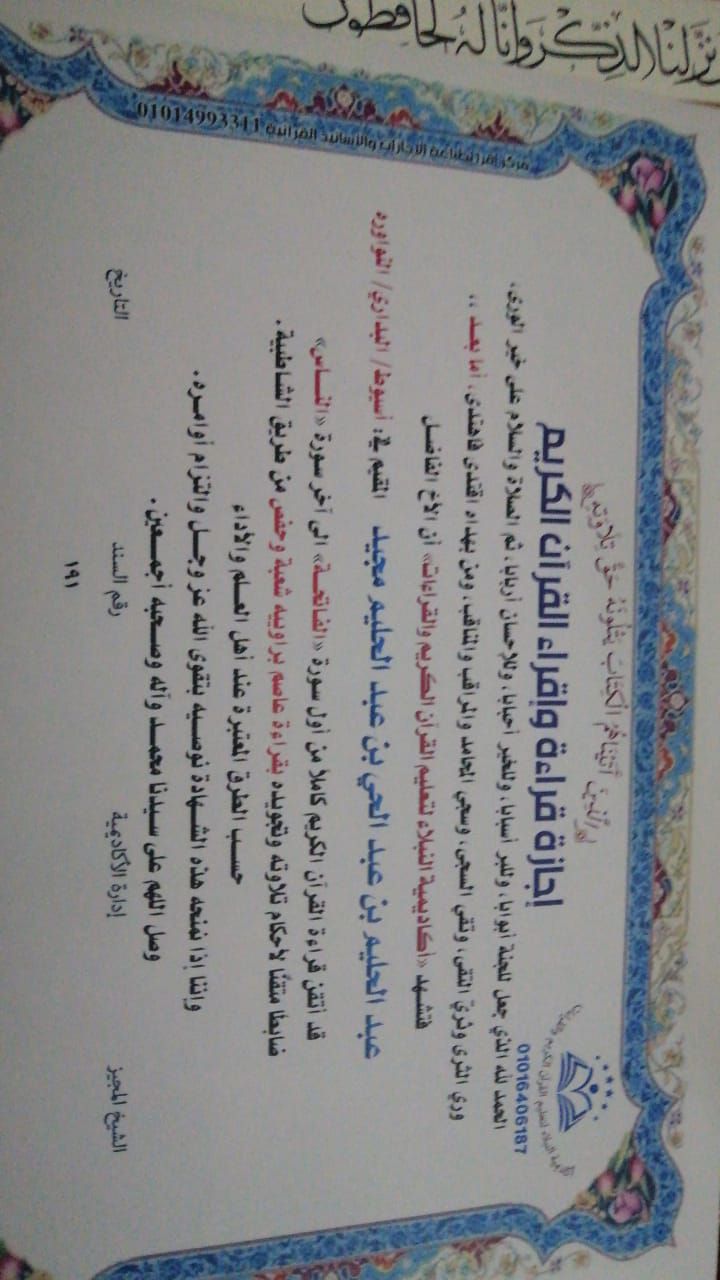 نزلنا الذكر وإنا له لحافظون
مركز اقرأ لطباعة الإجازات والأسانيد القرآنية 01014993341
الذين آتيناهم الكتاب يتلونه حق تلاوته
أكاديمية النبلاء لتعليم القرآن الكريم
01016406187
إجازة قراءة وإقراء القرآن الكريم
الحمد لله الذي جعل للجنة أبوابا، وللإحسان أربابا، وللخير أحبابا، وللبر أسبابا، ثم الصلاة والسلام على خير الورى،
وري الثرى وثري التقى، ونقي السجى، وسجي المحامد والمراقب والمناقب، ومن بهداه اقتدى فاهتدى، أما بعد ،،
فتشهد «أكاديمية النبلاء لتعليم القرآن الكريم والقراءات» أن الأخ الفاضل
عبد الحليم بن عبد الحي بن عبد الحليم مجيد المقيم في: أسيوط/ البداري/ النواوره
قد أتقن قراءة القرآن الكريم كاملا من أول سورة «الفاتحة» الى آخر سورة «الناس»
ضابطا متقنًا لأحكام تلاوته وتجويده بقراءة عاصم براوييه شعبة وحفص من طريق الشاطبية.
حسب الطرق المعتبرة عند أهل العلم والأداء
واننا إذا نمنحه هذه الشهادة نوصيه بتقوى الله عز وجل والتزام أوامره.
وصل اللهم على سيدنا محمد وآله وصحبه أجمعين.
الشيخ المجيز إدارة الأكاديمية رقم السند التاريخ
١٩١